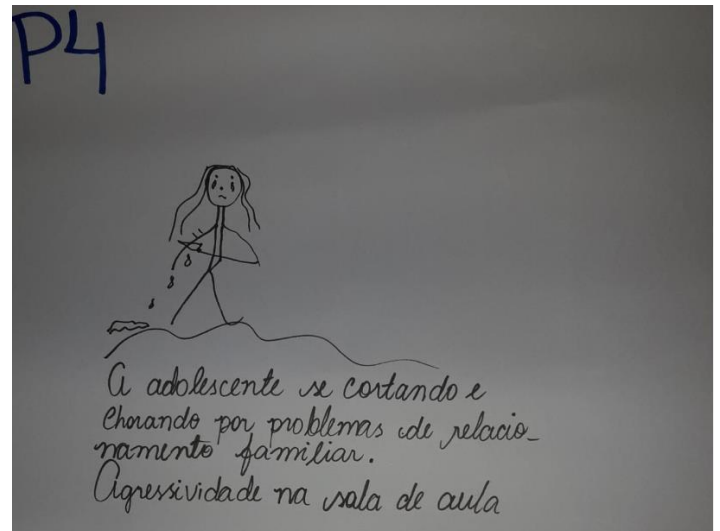 P4
A adolescente se cortando e
chorando por problemas de relacio-
namento familiar.
Agressividade na sala de aula